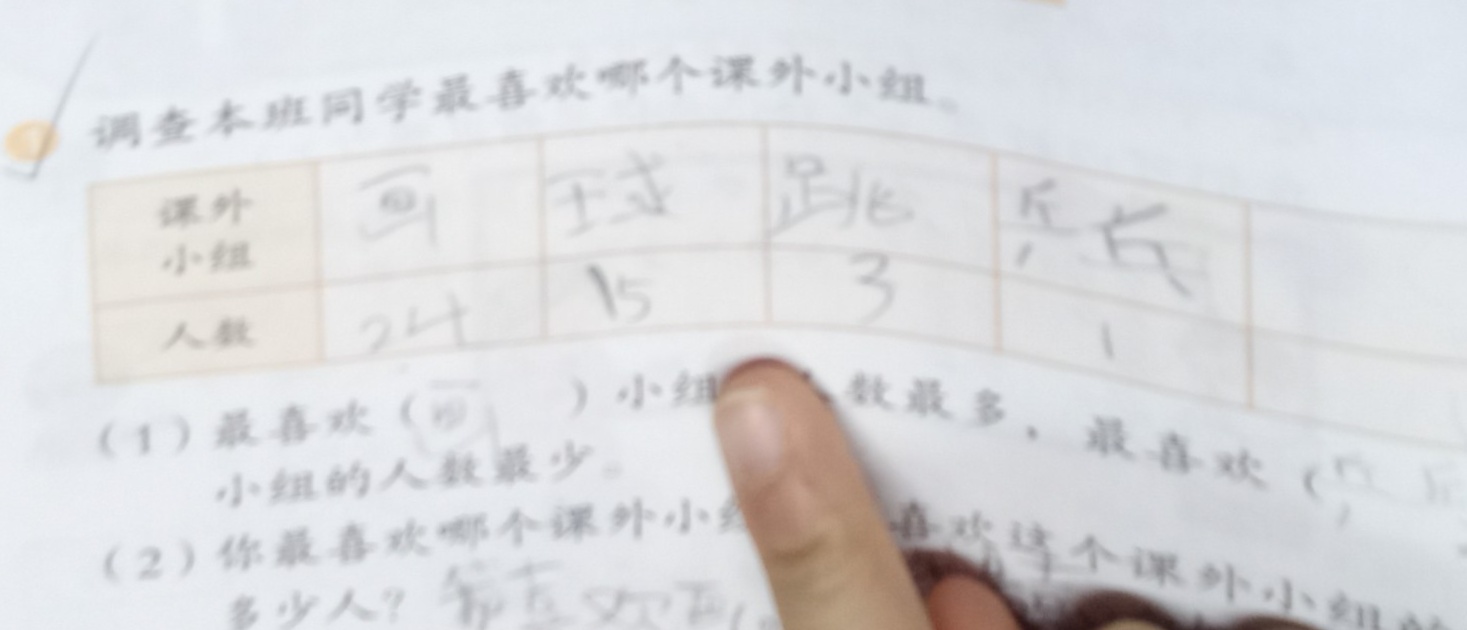 调查本班同学最喜欢哪个课外小组。
课外小组 画 球 跳 乒乓
人数 24 15 3 1
(1)最喜欢(画)小组 人数最多,最喜欢(乒乓
小组的人数最少。
(2)你最喜欢哪个课外小组 喜欢这个课外小组的
多少人?